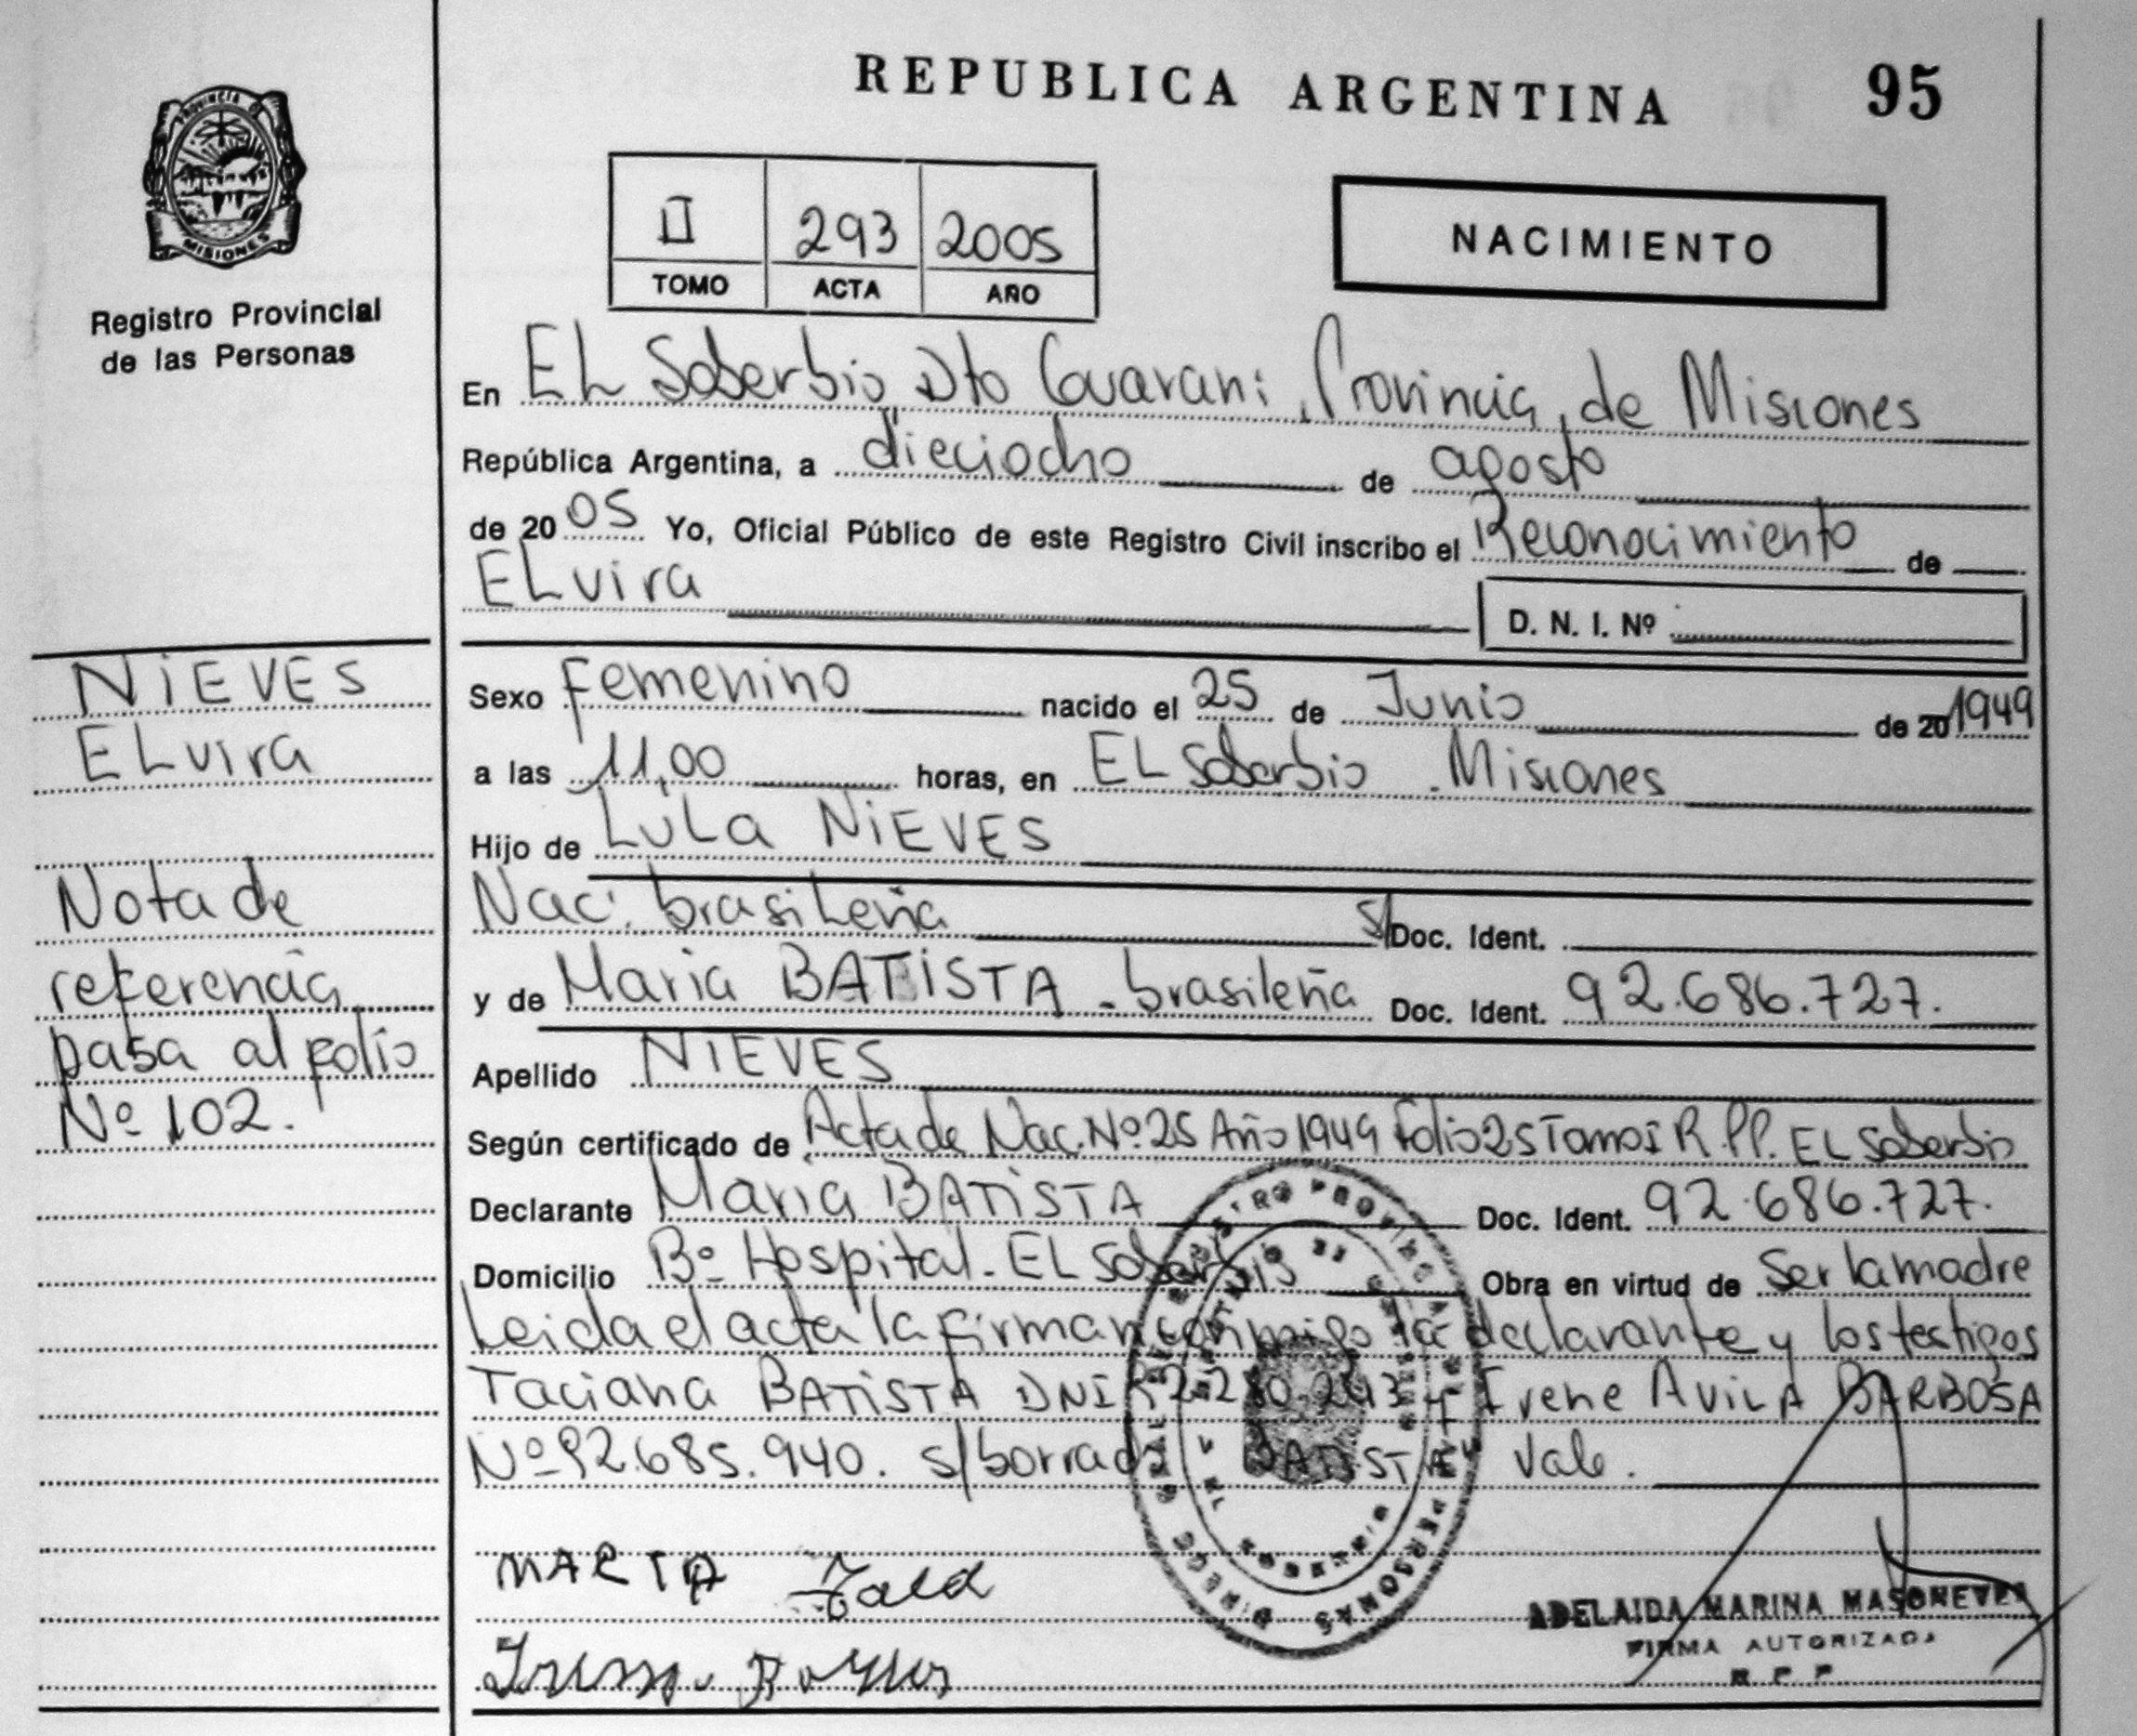 REPUBLICA ARGENTINA 95
PROVINCIA D
MISIONES
Registro Provincial
de las Personas
II 293 2005
TOMO ACTA AÑO
NACIMIENTO
En EL Soberbio, Dto Guarani, Provincia, de Misiones
República Argentina, a dieciocho de agosto
de 20 05 Yo, Oficial Público de este Registro Civil inscribo el Reconocimiento de
ELvira
D. N. I. Nº
NIEVES
ELvira
Nota de
referencia
pasa al folio
Nº 102.
Sexo Femenino nacido el 25 de Junio de 20 1949
a las 11,00 horas, en EL Soberbio - Misiones
Hijo de LuLa NIEVES
Nac. brasiLeña s/ Doc. Ident.
y de Maria BATISTA - brasileña Doc. Ident. 92.686.727.
Apellido NIEVES
Según certificado de Acta de Nac. Nº 25 Año 1949 Folio 25 Tomo I R.PP. EL Soberbio
Declarante Maria BATISTA Doc. Ident. 92.686.727.
Domicilio Bº Hospital - EL Soberbio Obra en virtud de Ser la madre
Leida el acta la firman conmigo la declarante y los testigos
Taciana BATISTA DNI y Irene AVILA BARBOSA
Nº 92.685.940. s/borrado BATISTA Vale.
MARIA
ADELAIDA MARINA
FIRMA AUTORIZADA
R.P.P.